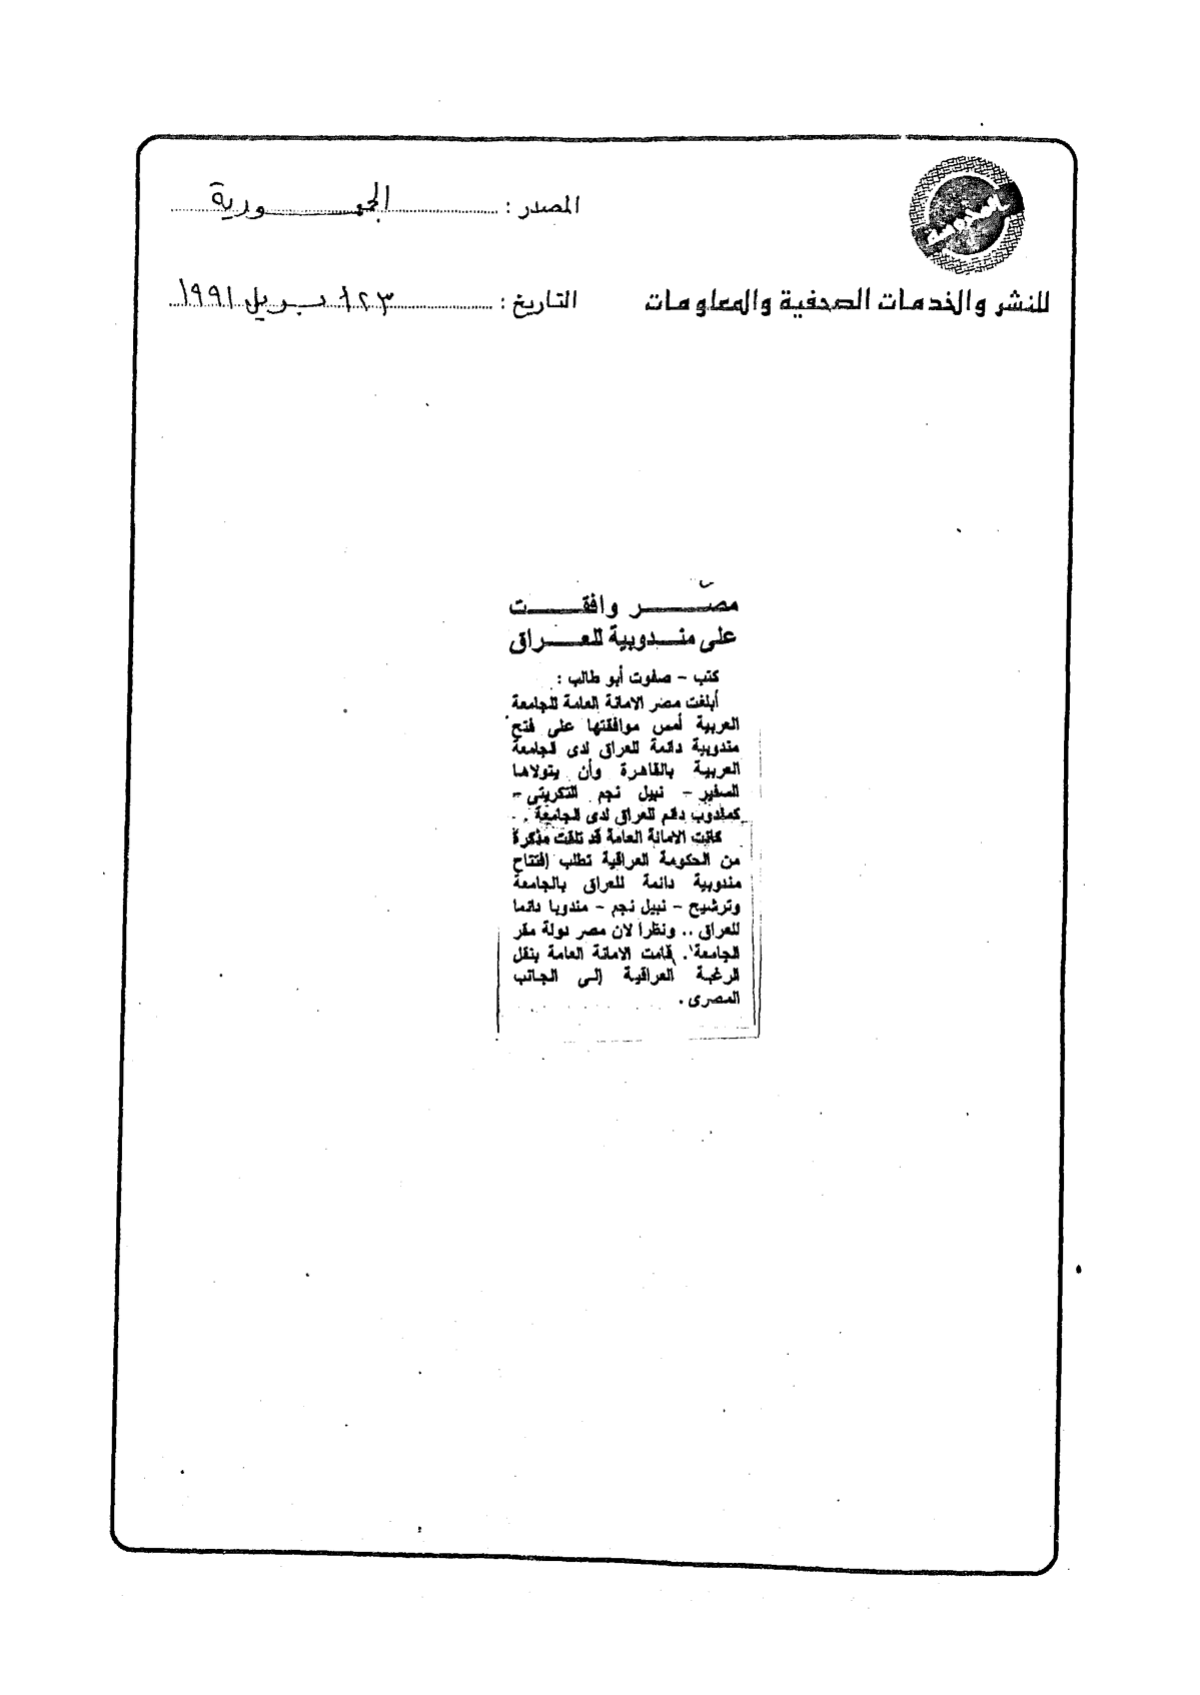 المصدر : الجمهورية
للنشر والخدمات الصحفية والمعلومات
التاريخ : ٢٣ ابريل ١٩٩١
مصر وافقت
على مندوبية للعراق
كتب - صفوت أبو طالب :
أبلغت مصر الامانة العامة للجامعة
العربية أمس موافقتها على فتح
مندوبية دائمة للعراق لدى الجامعة
العربية بالقاهرة وأن يتولاها
السفير - نبيل نجم التكريتى -
كمندوب دائم للعراق لدى الجامعة .
كانت الامانة العامة قد تلقت مذكرة
من الحكومة العراقية تطلب إفتتاح
مندوبية دائمة للعراق بالجامعة
وترشيح - نبيل نجم - مندوبا دائما
للعراق .. ونظرا لان مصر دولة مقر
الجامعة . قامت الامانة العامة بنقل
الرغبة العراقية إلى الجانب
المصرى .